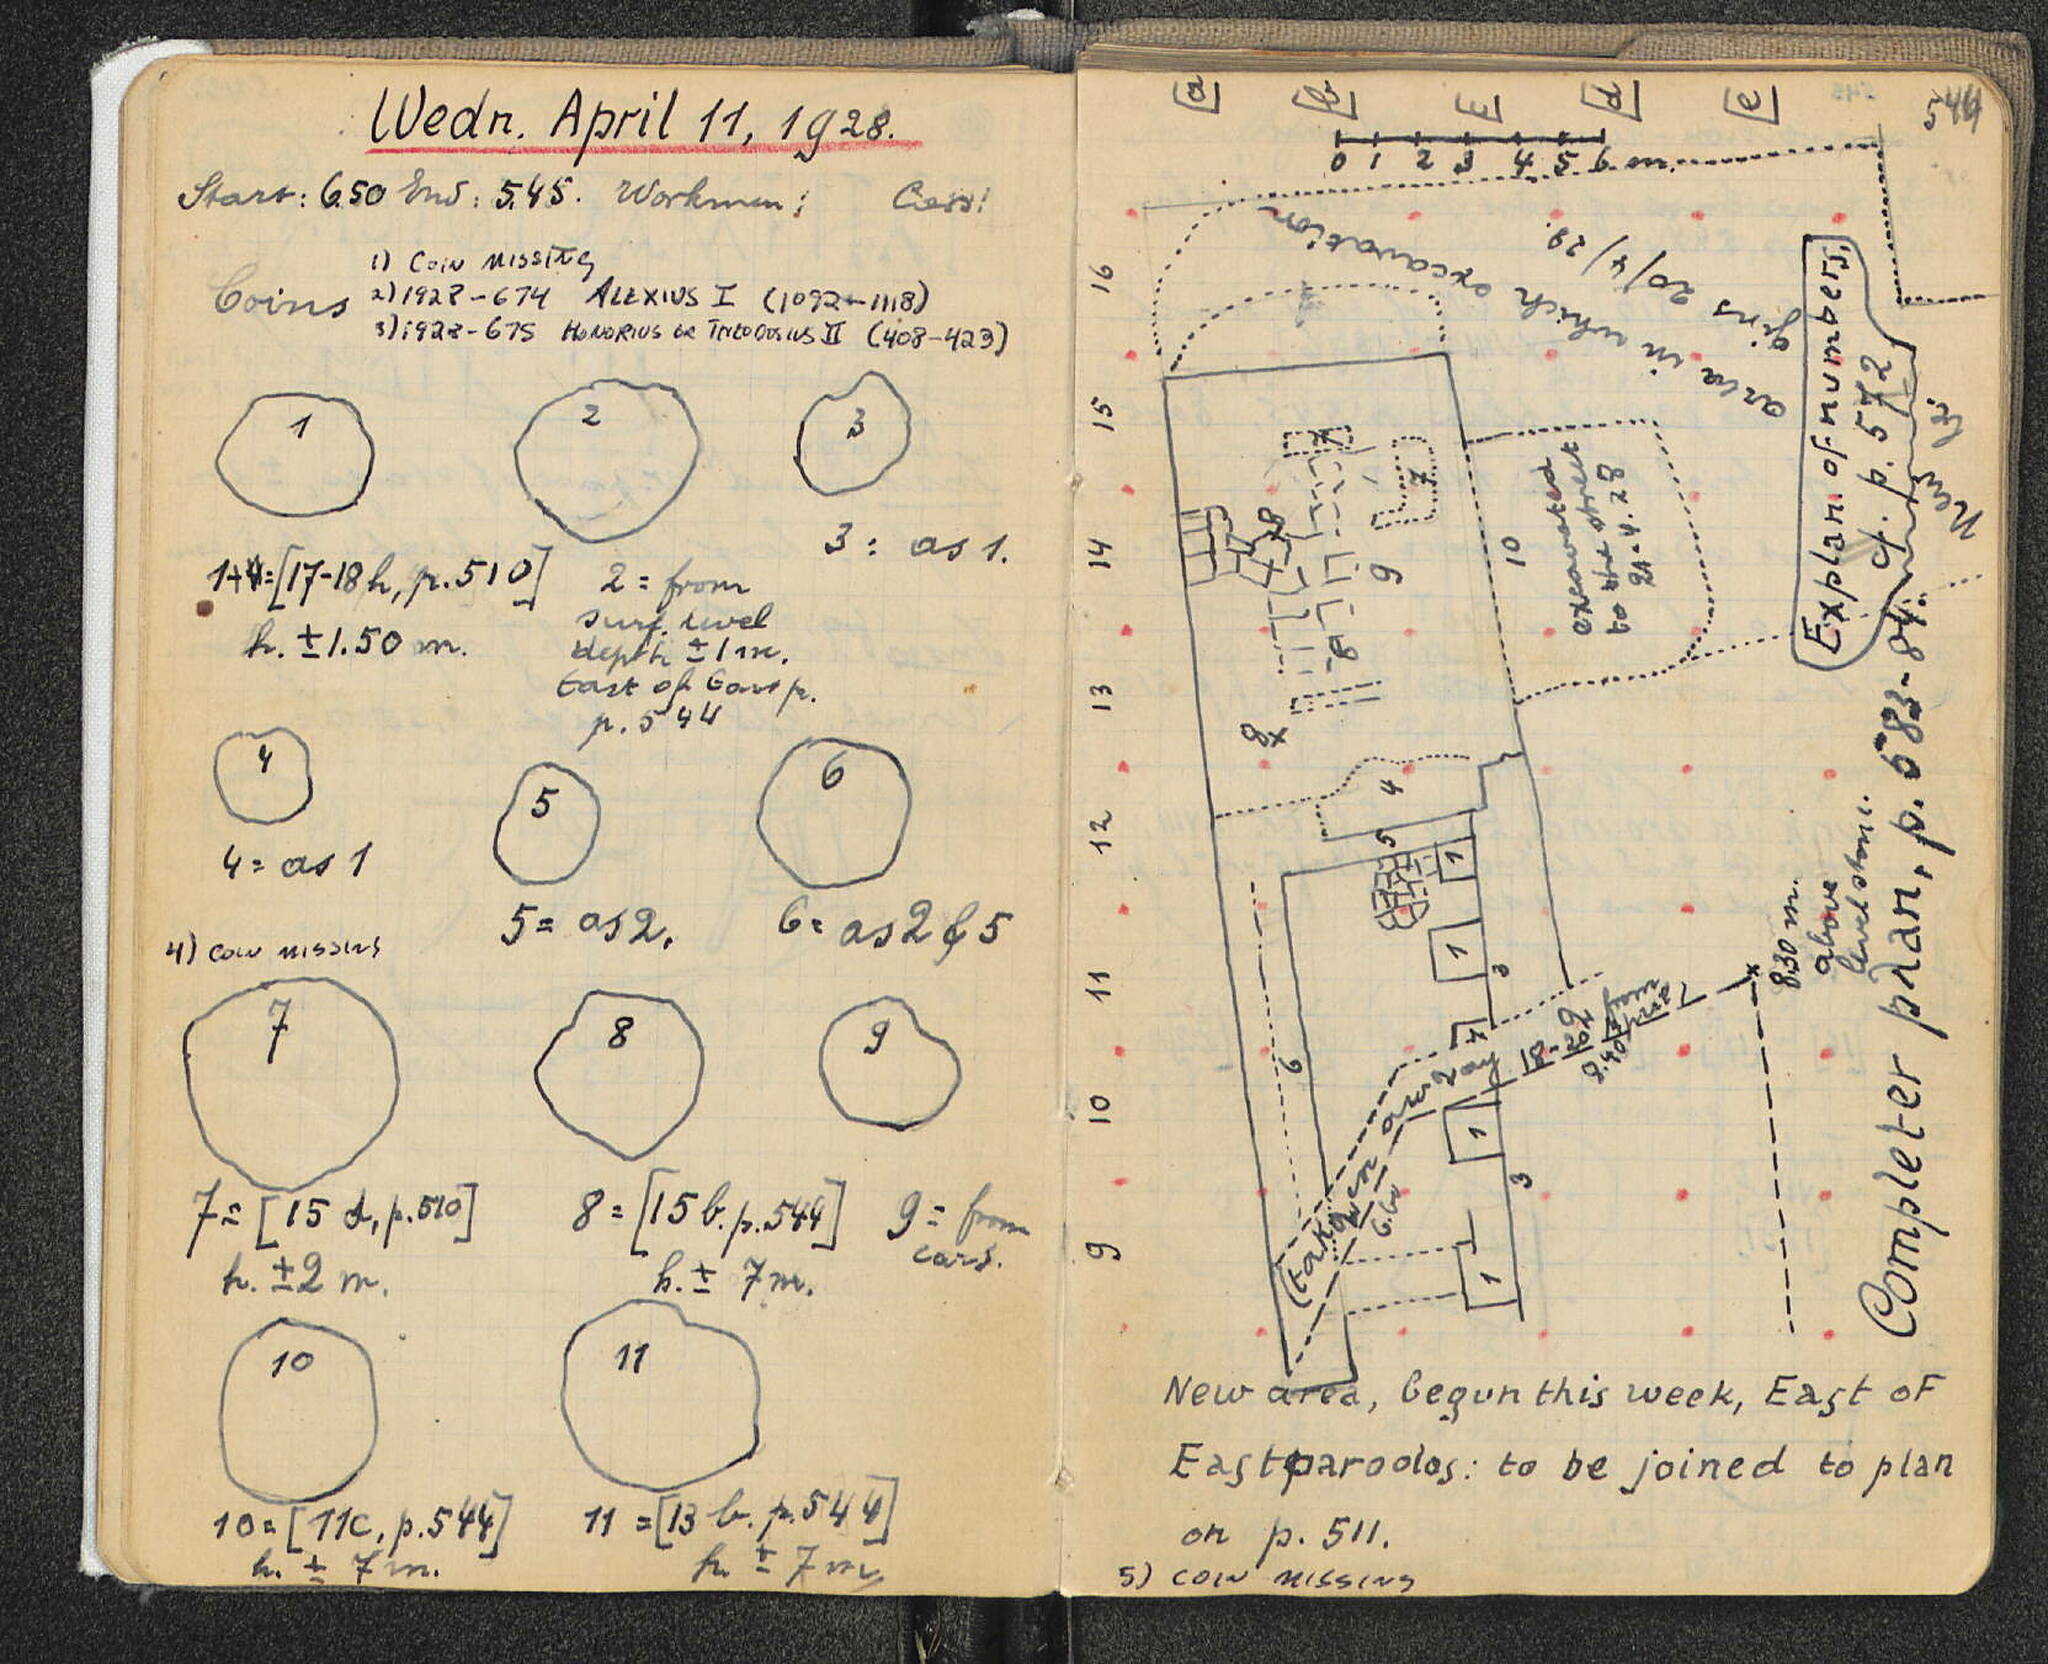 Wedn. April 11, 1928.
Start: 6.50 End: 5.45. Workmen:
Coins
1) COIN MISSING
2) 1928-674 ALEXIUS I (1092-1118)
3) 1928-675 HONORIUS OR THEODOSIUS II (408-423)
1
2
3
3: as 1.
1+4=[17-18h, p.510]
h. ±1.50 m.
2 = from
surf. level
depth ±1 m.
East of
p. 544
4
5
6
4= as 1
5= as 2.
6= as 2 & 5
4) COIN MISSING
7
8
9
7= [15 d, p.510]
h. ±2 m.
8=[15 b. p.544]
h. ± 7m.
9= from
10
11
10=[11c, p.544]
h. ± 7m.
11 =[13 b. p.544]
h. ± 7m
544
a
b
c
d
e
0 1 2 3 4 5 6 m.
16
15
14
13
12
11
10
9
area in which excavation
20/4/28.
Explan. of numbers,
cf. p. 572
New
excavated
to the street
21.4.28
10
7
7
9
8
8
8
x
4
5
1
1
3
7
6
1
3
1
(taken away)
18-
x
8.30 m.
above
level stone.
Completer plan, p. 583-84.
New area, begun this week, East of
Eastparodos: to be joined to plan
on p. 511.
5) COIN MISSING